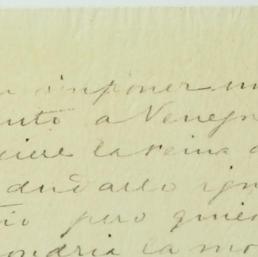 a imponer un
ento a Venega
quiere la reina d
dudarlo ign
tio pero quier
ondria la mo